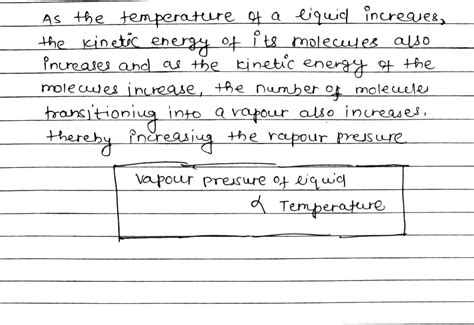 As the temperature of a liquid increases,
the kinetic energy of its molecules also
increases and as the kinetic energy of the
molecules increase, the number of molecule
transitioning into a vapour also increases.
thereby increasing the vapour pressure
Vapour pressure of liquid
∝ Temperature